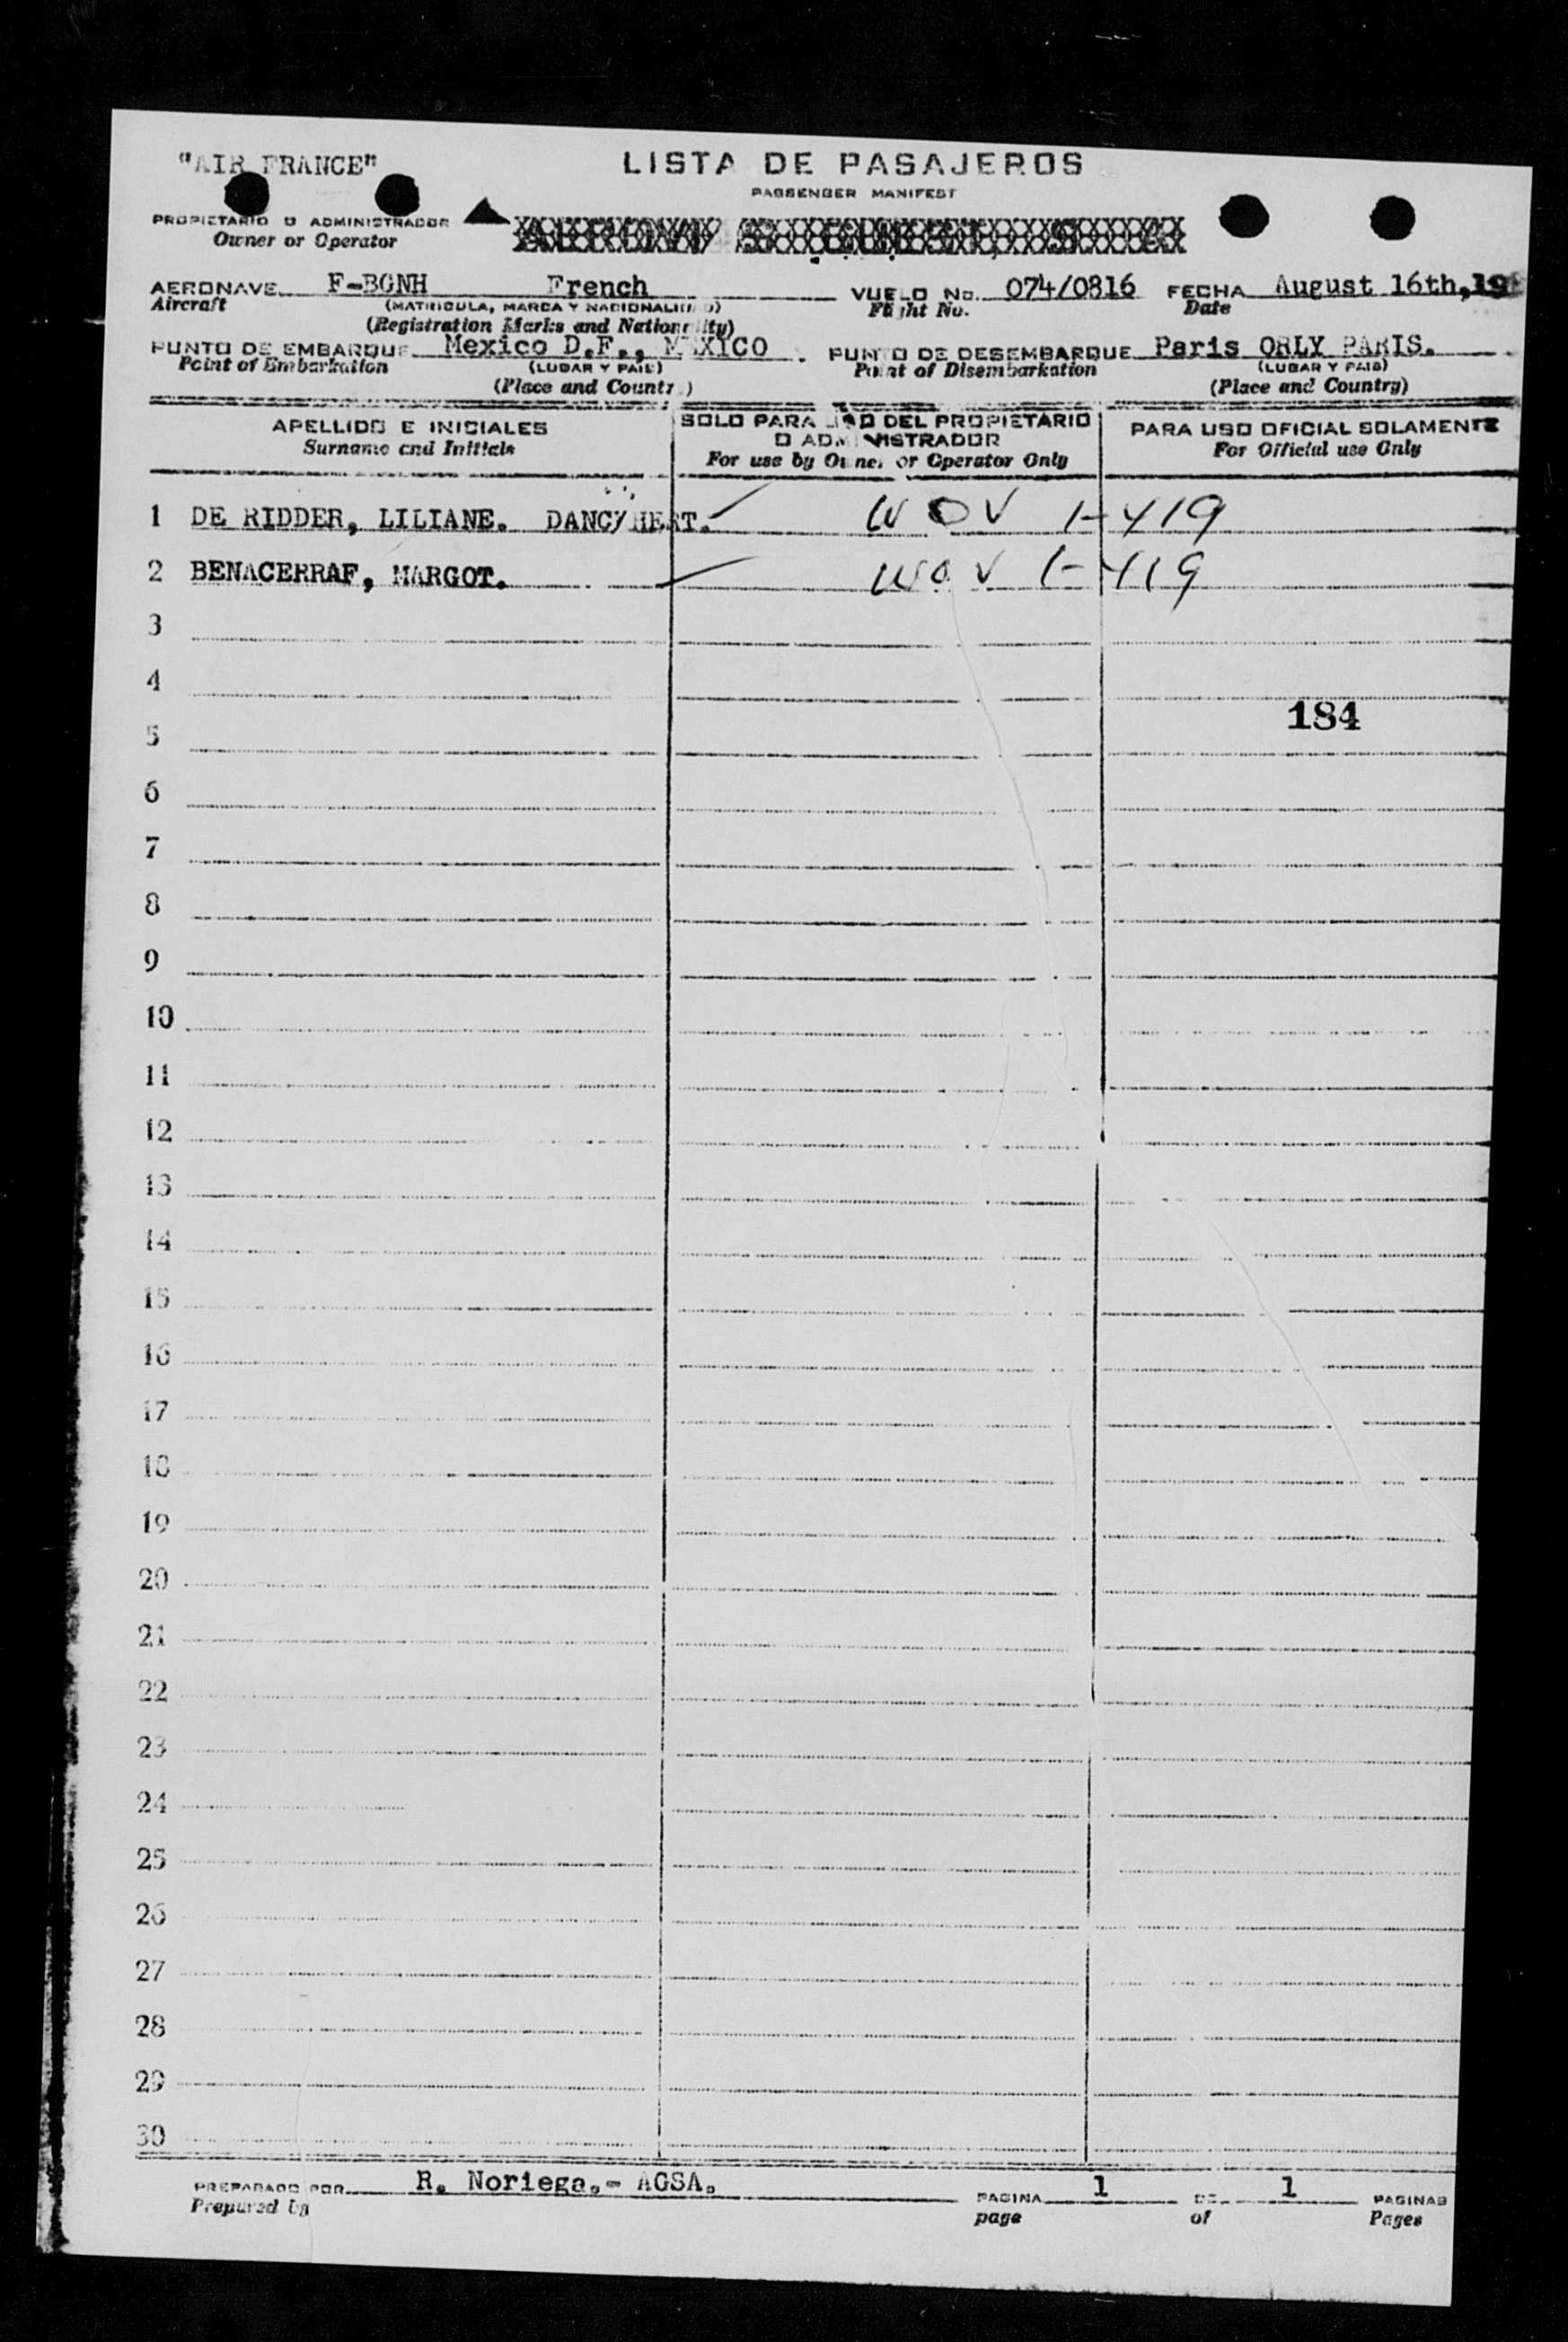 "AIR FRANCE"
LISTA DE PASAJEROS
PASSENGER MANIFEST
PROPIETARIO O ADMINISTRADOR
Owner or Operator
AERONAVE F-BGNH French VUELO No. 074/0816 FECHA August 16th, 19
Aircraft (MATRICULA, MARCA Y NACIONALIDAD) Flight No. Date
(Registration Marks and Nationality)
PUNTO DE EMBARQUE Mexico D.F., MEXICO. PUNTO DE DESEMBARQUE Paris ORLY PARIS.
Point of Embarkation (LUGAR Y PAIS) Point of Disembarkation (LUGAR Y PAIS)
(Place and Country) (Place and Country)
APELLIDO E INICIALES
Surname and Initials
SOLO PARA USO DEL PROPIETARIO
O ADMINISTRADOR
For use by Owner or Operator Only
PARA USO OFICIAL SOLAMENTE
For Official use Only
1 DE RIDDER, LILIANE. WOV 1-419
2 BENACERRAF, MARGOT. WOV 1-419
3
4
184
5
6
7
8
9
10
11
12
13
14
15
16
17
18
19
20
21
22
23
24
25
26
27
28
29
30
PREPARADO POR R. Noriega.- AGSA. PAGINA 1 DE 1 PAGINAS
Prepared by page of Pages